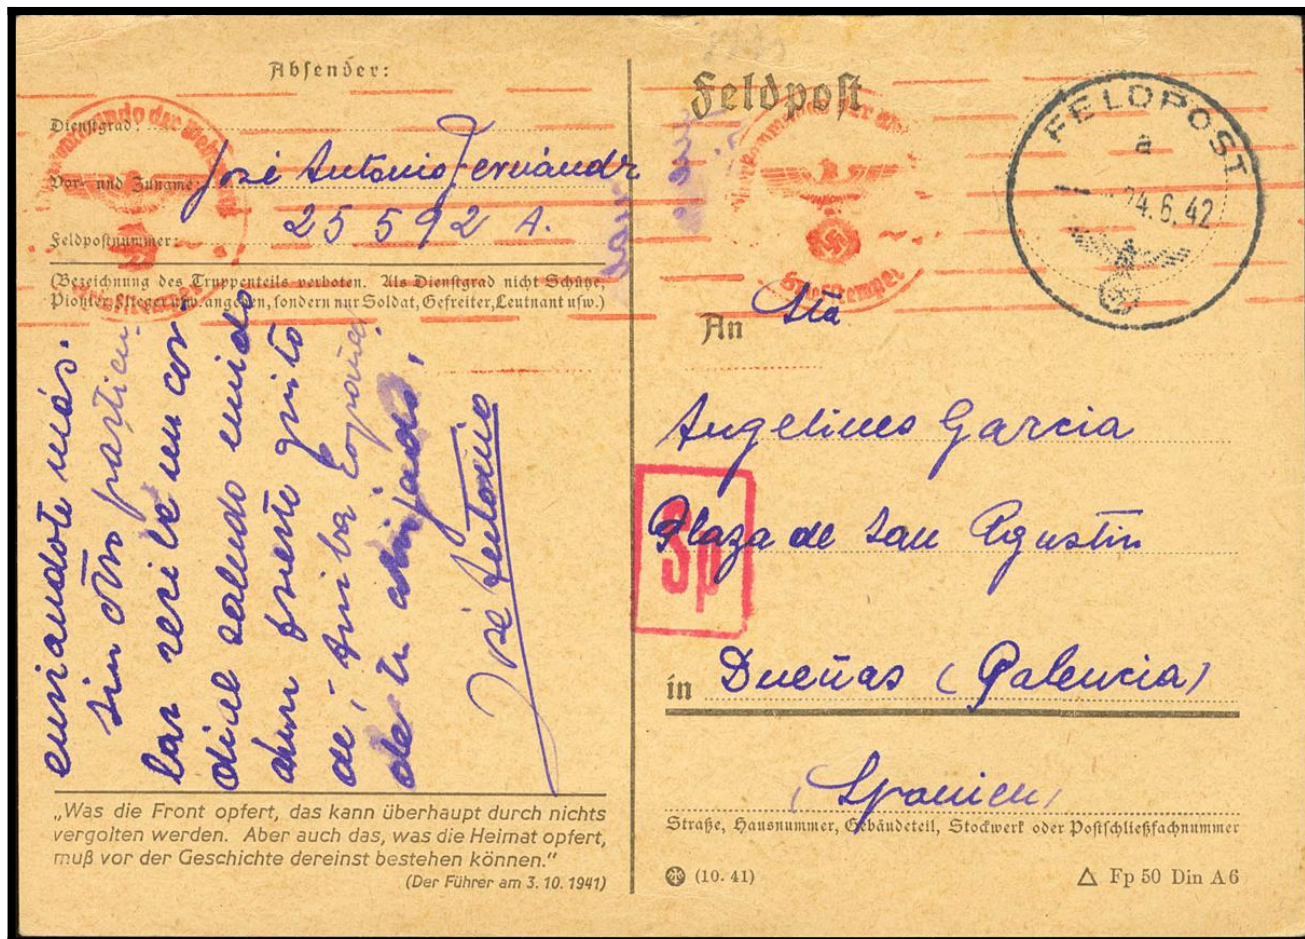 Absender:
Dienstgrad:
Vor- und Zuname: José Antonio Fernández
Feldpostnummer: 25592 A.
(Bezeichnung des Truppenteils verboten. Als Dienstgrad nicht Schütze,
Pionier, Flieger usw. angeben, sondern nur Soldat, Gefreiter, Leutnant usw.)
enviandote más.
Sin otro particu-
lar recibe un cor-
dial saludo unido
a un fuerte grito
de ¡Arriba España!
de tu ahijado,
José Antonio
„Was die Front opfert, das kann überhaupt durch nichts
vergolten werden. Aber auch das, was die Heimat opfert,
muß vor der Geschichte dereinst bestehen können.“
(Der Führer am 3. 10. 1941)
Feldpost
Oberkommando der Wehrmacht
Briefstempel
FELDPOST
a
24.6.42
An Sta
Angelines Garcia
Plaza de San Agustin
Sp
in Dueñas (Palencia)
(Spanien)
Straße, Hausnummer, Gebäudeteil, Stockwerk oder Postschließfachnummer
(10. 41)
△ Fp 50 Din A 6